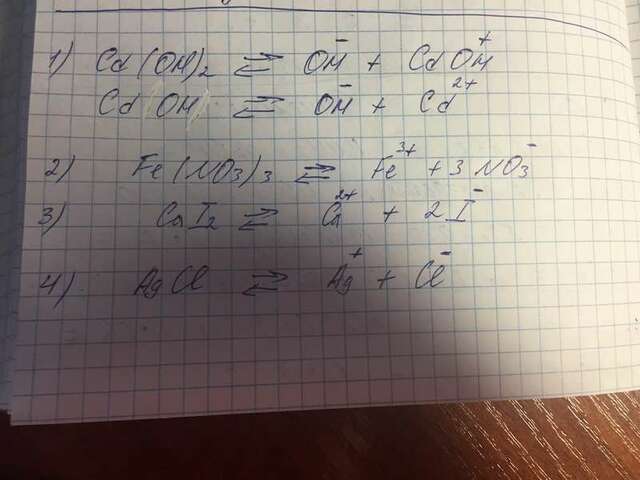 1) Cd(OH)₂ ⇄ OH⁻ + CdOH⁺
Cd(OH) ⇄ OH⁻ + Cd²⁺
2) Fe(NO₃)₃ ⇄ Fe³⁺ + 3NO₃⁻
3) CaI₂ ⇄ Ca²⁺ + 2I⁻
4) AgCl ⇄ Ag⁺ + Cl⁻